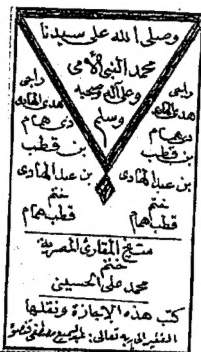 وصلى الله على سيدنا
محمد النبي الأمي
وعلى آله وصحبه
وسلم
راجي
هدى الهادي
ذي همام
بن قطب
بن عبد الهادي
ختم
قطب همام
راجي
هدى الهادي
ذي همام
بن قطب
بن عبد الهادي
ختم
قطب همام
شيخ المقارئ المصرية
ختم
محمد علي الحسيني
كتب هذه الإجازة ونقلها
الفقير إلى ربه تعالى: